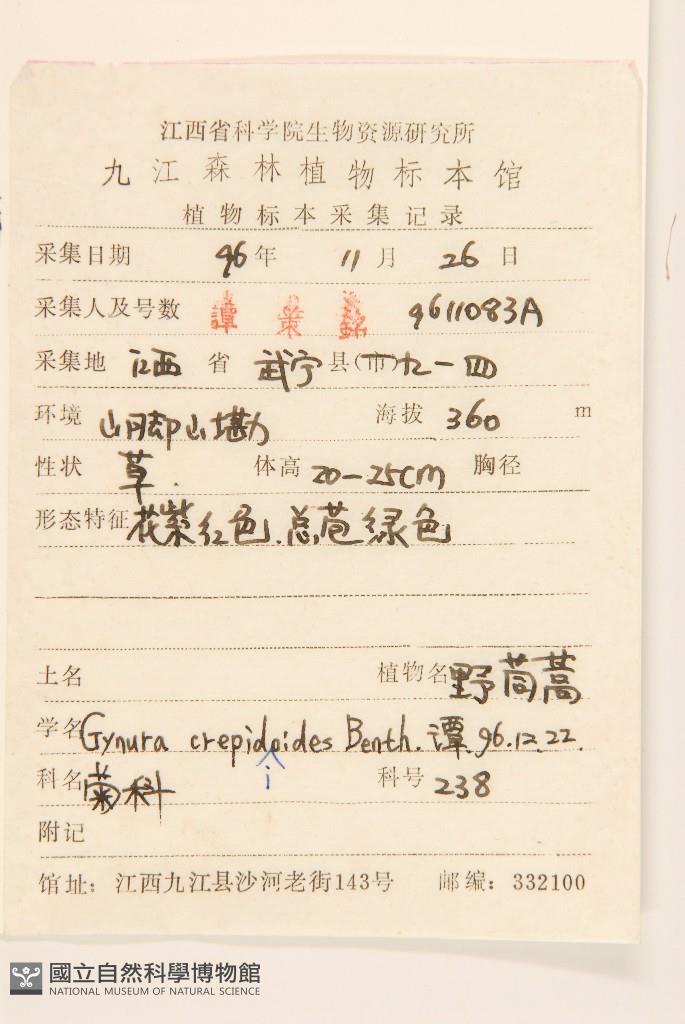 江西省科学院生物资源研究所
九江森林植物标本馆
植物标本采集记录
采集日期 96年 11月 26日
采集人及号数 譚策銘 9611083A
采集地 江西 省 武宁 县(市)九一四
环境 山脚山墈 海拔 360 m
性状 草. 体高 20-25cm 胸径
形态特征 花紫红色.总苞绿色
土名 植物名 野茼蒿
学名 Gynura crepidoides Benth. 谭.96.12.22.
i
科名 菊科 科号 238
附记
馆址：江西九江县沙河老街143号 邮编：332100
國立自然科學博物館
NATIONAL MUSEUM OF NATURAL SCIENCE